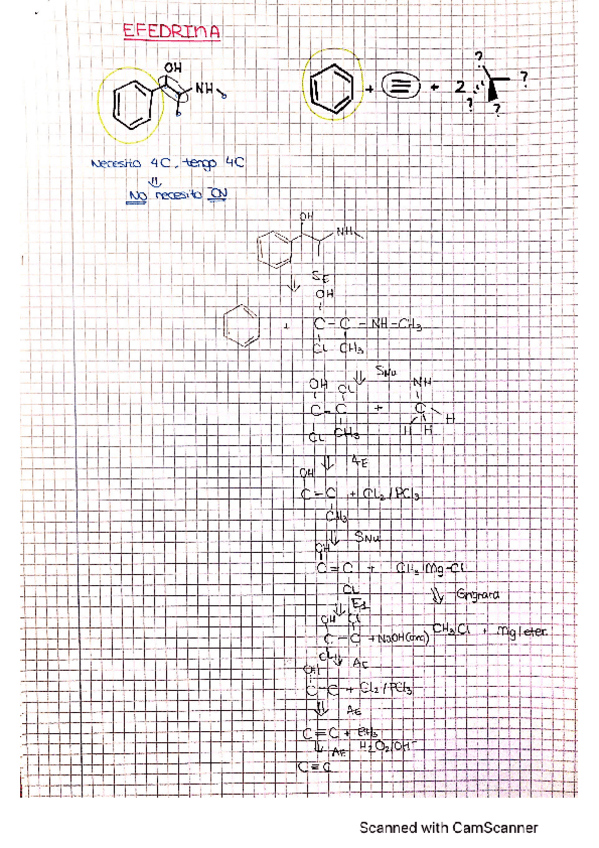 EFEDRINA
OH
NH
+ + 2
? ? ? ?
Necesito 4C. tengo 4C
⇓
NO necesito CN
OH
NH
⇓ SE
OH
+ C-C-NH-CH3
Cl CH3
⇓ SNu
OH Cl NH
C-C + C H
Cl CH3 H H
⇓ AE
OH
C-C + Cl2/PCl3
CH3
⇓ SNu
OH
C=C + CH3Mg-Cl
Cl
⇓ E1 ⇓
OH Cl CH3Cl + Mg/eter
C-C + NaOH(conc)
Cl ⇓ AE
OH
C-C + Cl2/PCl3
⇓ AE
C=C +
⇓ AE H2O2/OH-
C≡C
Scanned with CamScanner